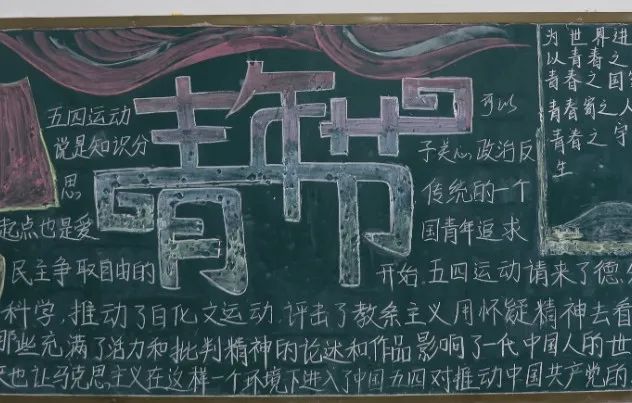 青年节
五四运动 可以
说是知识分 子关心政治反
思 传统的一个
起点也是爱 国青年追求
民主争取自由的 开始.五四运动请来了德.
科学,推动了白化文运动.评击了教条主义用怀疑精神去看
那些充满了活力和批判精神的论述和作品影响了一代中国人的世
也让马克思主义在这样一个环境下进入了中国五四对推动中国共产党的
为世界进
以青春之
青春之国
青春 之人
青春之宇
生